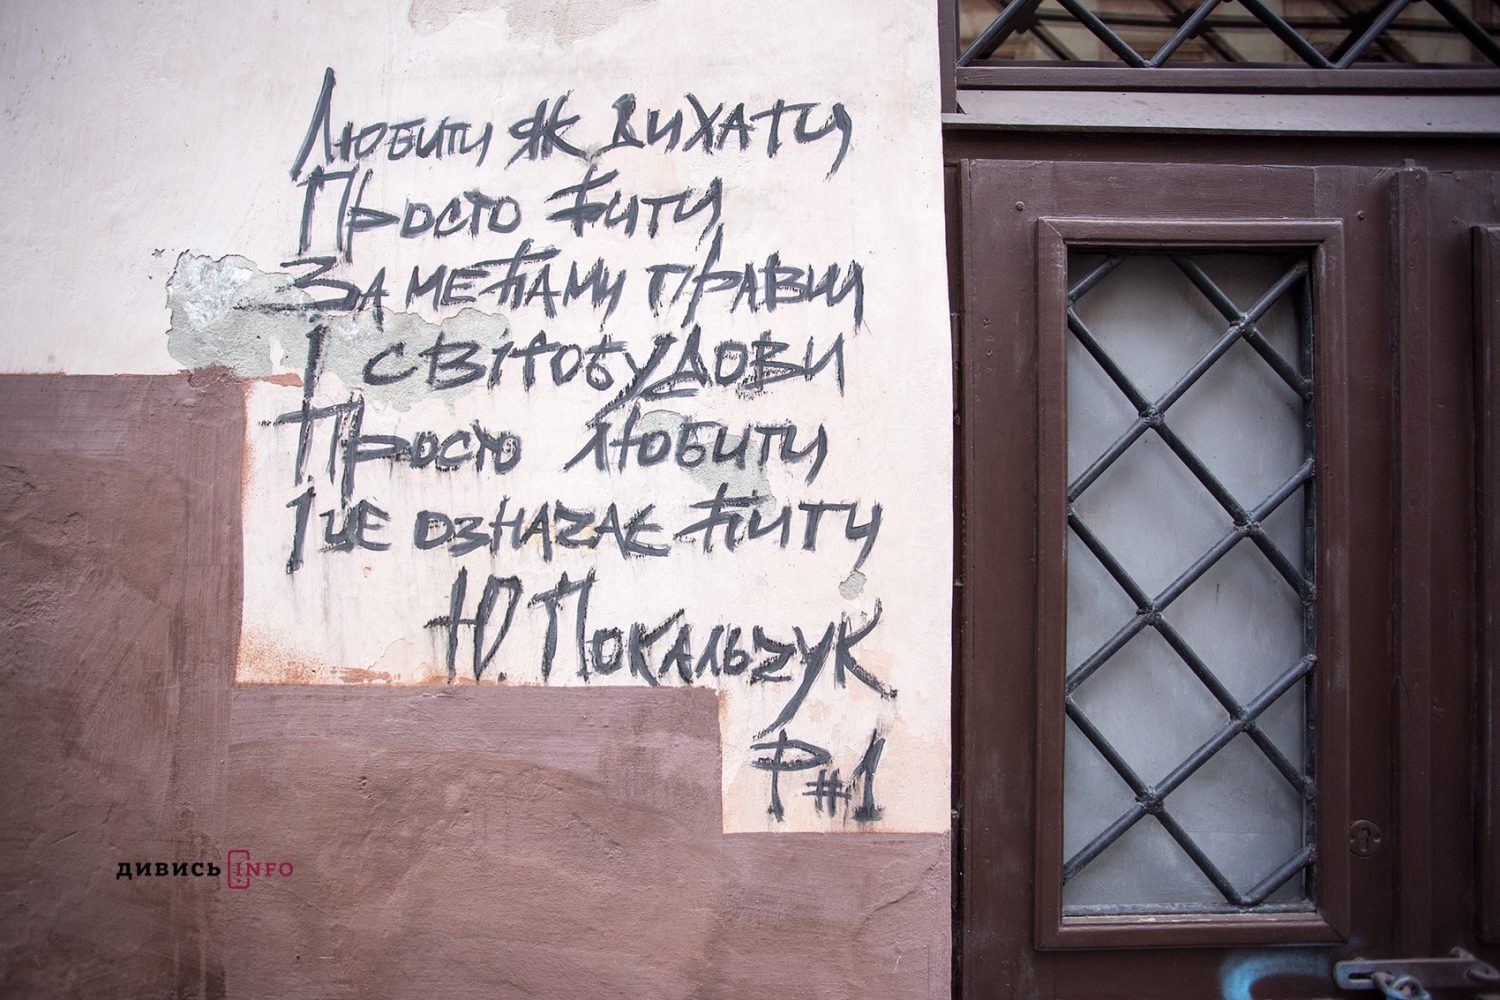 Любити як дихати
Просто жити
За межами прави
І світобудови
Просто любити
І це означає жити
Ю. Покальчук
Р#1
ДИВИСЬ INFO